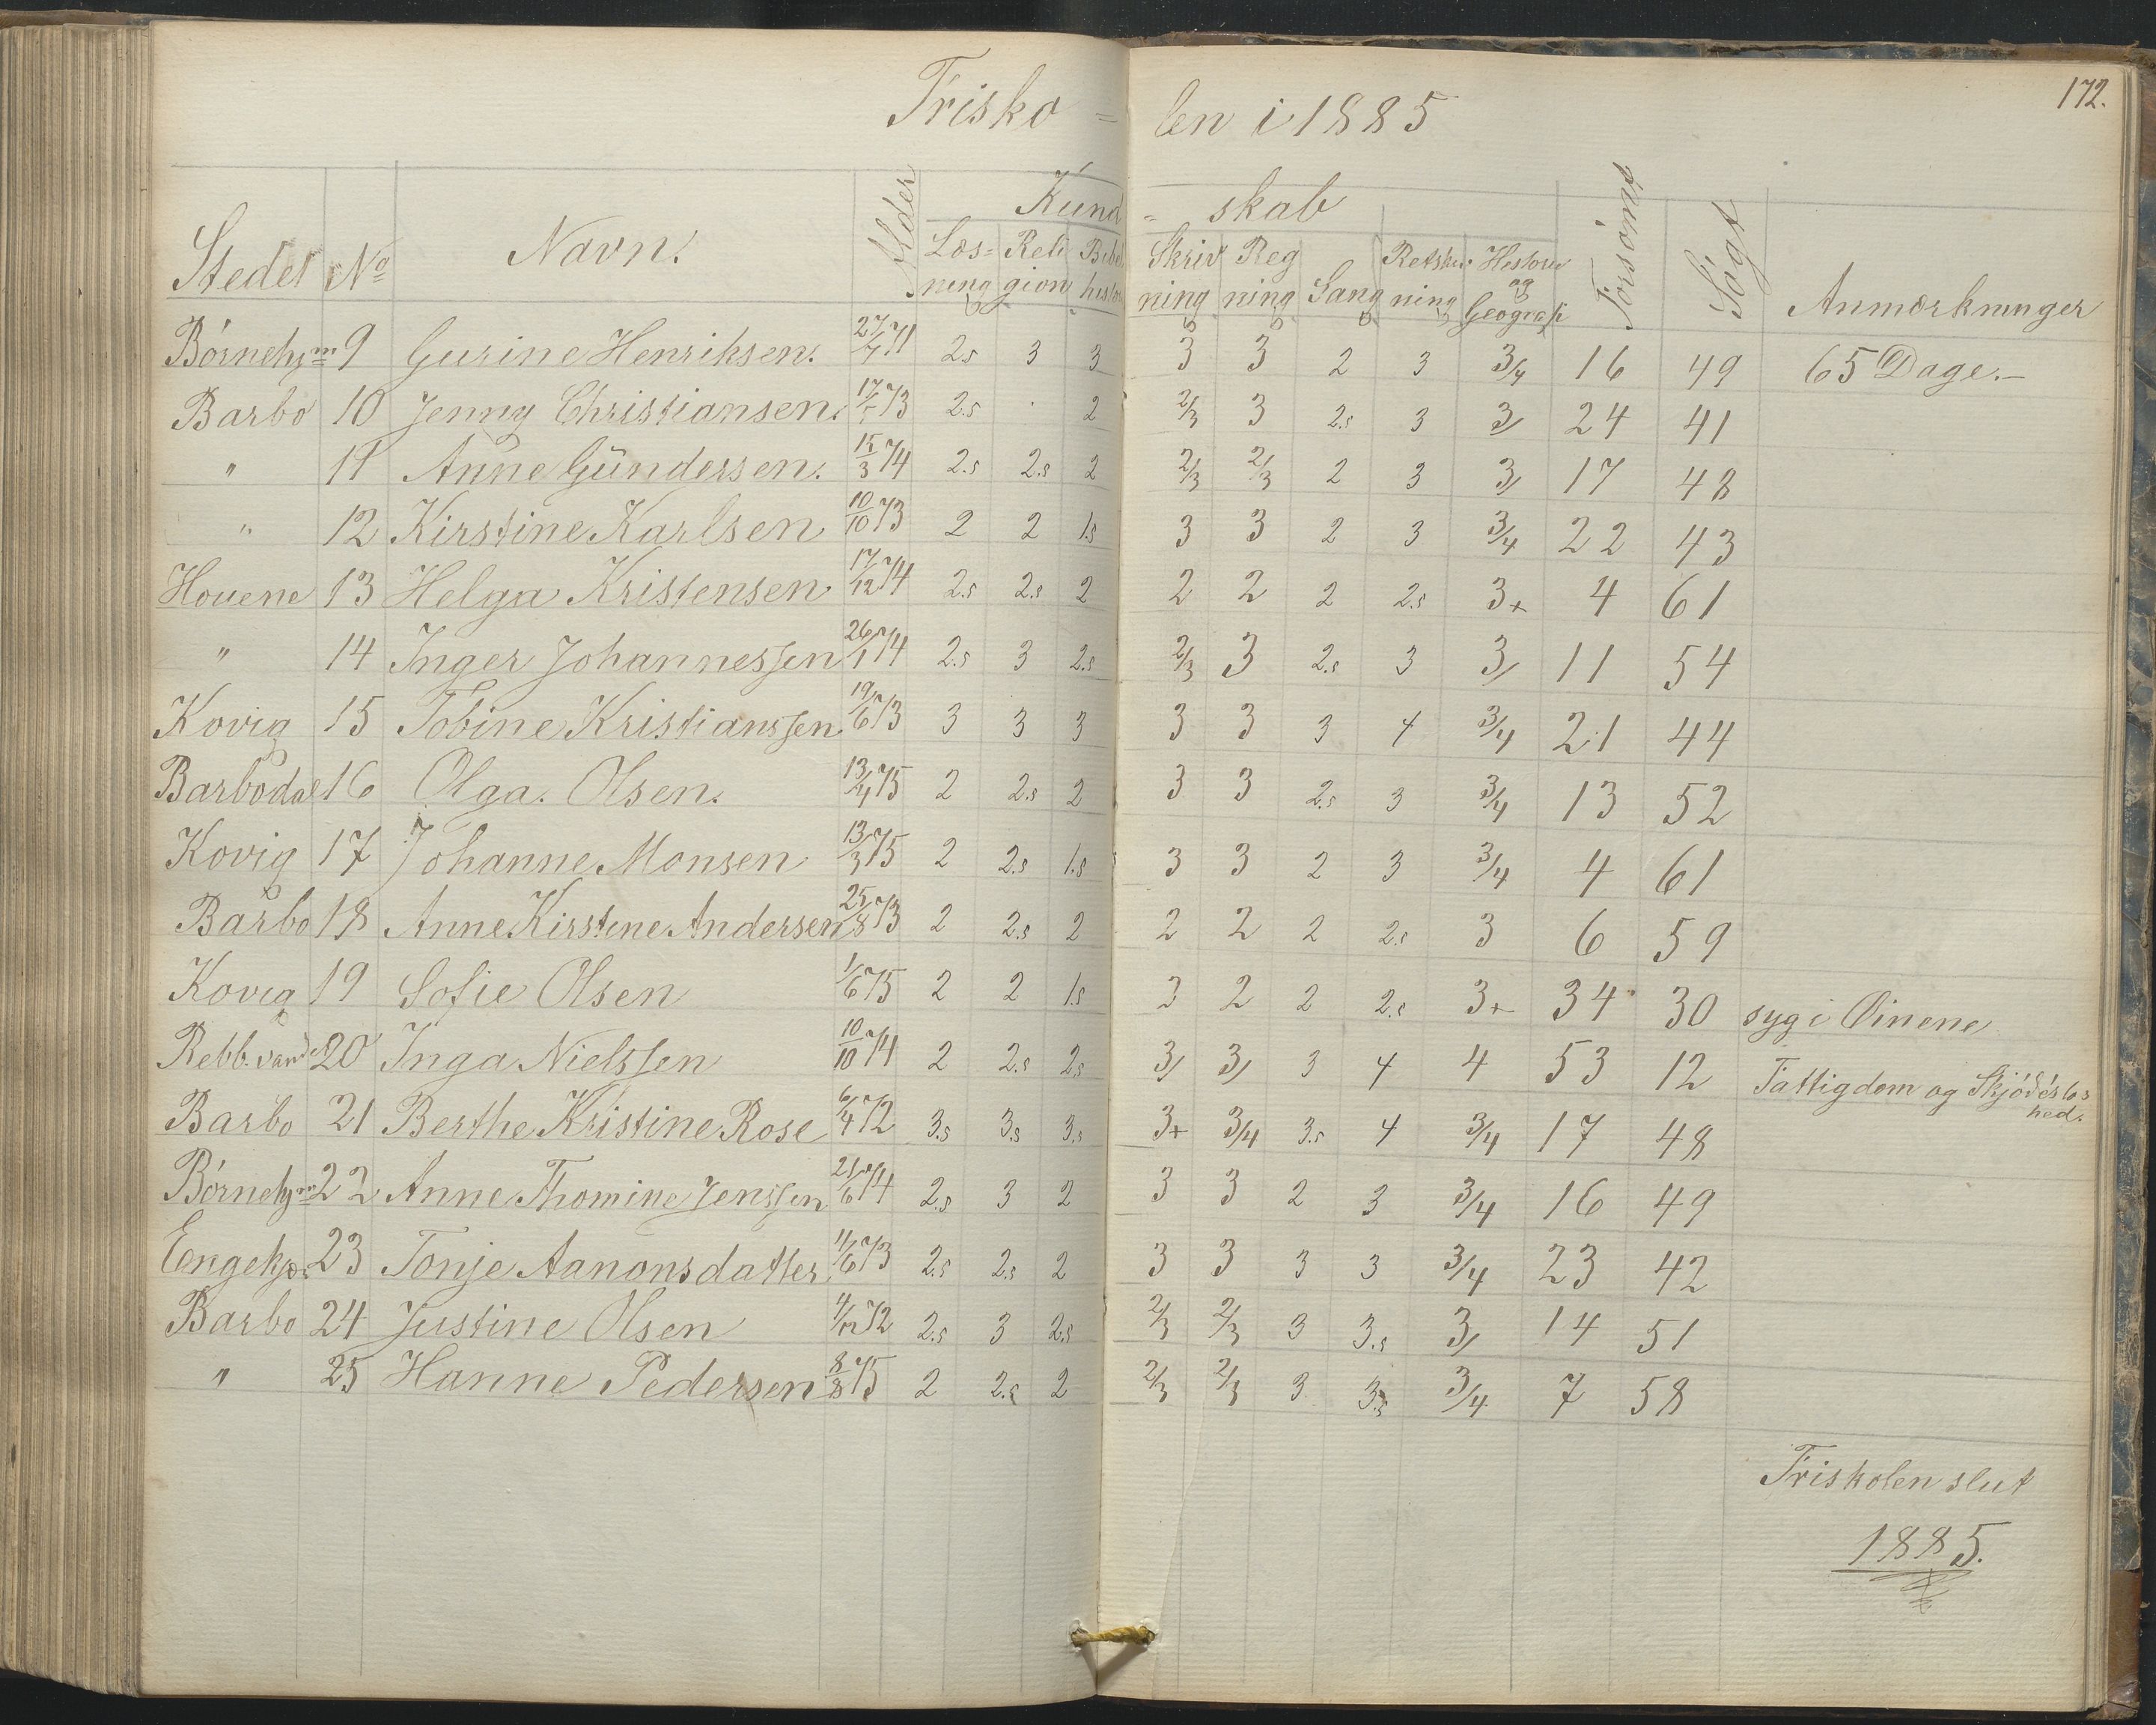 172.
Frisko = len i 1885
Stedet No Navn. Alder Kund = skab Forsömt Sögt Anmærkninger
Læs= ning Reli gion Bibel histor Skriv ning Reg ning Sang Retskr ning Historie og Geografi
Börnehjm 9 Gurine Henriksen. 27/7 71 2.5 3 3 3 3 2 3 3/4 16 49 65 Dage.-
Barbo 10 Jenny Christiansen. 17/5 73 2.5 . 2 2/3 3 2.5 3 3/ 24 41
" 11 Anne Gündersen. 15/3 74 2.5 2.5 2 2/3 2/3 2 3 3/ 17 48
" 12 Kirstine Karlsen 10/10 73 2 2 1.5 3 3 2 3 3/4 22 43
Houene 13 Helga Kristensen 17/12 74 2.5 2.5 2 2 2 2 2.5 3+ 4 61
" 14 Inger Johannessen 26/1 74 2.5 3 2.5 2/3 3 2.5 3 3/ 11 54
Kovig 15 Tobine Kristianssen 19/6 73 3 3 3 3 3 3 4 3/4 21 44
Barbodal 16 Olga. Olsen. 13/4 75 2 2.5 2 3 3 2.5 3 3/4 13 52
Kovig 17 Johanne Monsen 13/3 75 2 2.5 1.5 3 3 2 3 3/4 4 61
Barbo 18 Anne Kirstine Andersen 25/8 73 2 2.5 2 2 2 2 2.5 3 6 59
Kovig 19 Sofie Olsen 1/6 75 2 2 1.5 2 2 2 2.5 3+ 34 30 syg i Öinene
Rebb. vand 20 Inga Nielssen 10/10 74 2 2.5 2.5 3/ 3/ 3 4 4 53 12 Fattigdom og Skjödeslos
hed.
Barbo 21 Berthe Kristine Rose 6/4 72 3.5 3.5 3.5 3+ 3/4 3.5 4 3/4 17 48
Börnehjm 22 Anne Thomine Jenssen 21/6 74 2.5 3 2 3 3 2 3 3/4 16 49
Engekjær 23 Tonje Aanonsdatter 11/6 73 2.5 2.5 2 3 3 3 3 3/4 23 42
Barbo 24 Justine Olsen 4/12 72 2.5 3 2.5 2/3 2/3 3 3.5 3/ 14 51
" 25 Hanne Pedersen 8/8 75 2 2.5 2 2/3 2/3 3 3.5 3/4 7 58
Friskolen slut
1885.